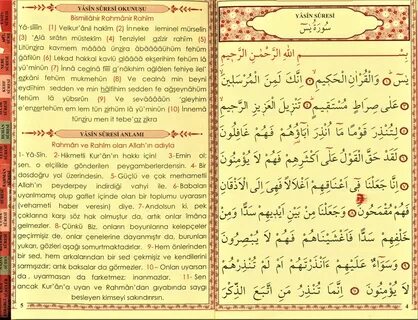 YÂSİN SÛRESİ
سُورَةُ يٰسٓ
بِسْمِ اللّٰهِ الرَّحْمٰنِ الرَّحِيمِ
يٰسٓ وَالْقُرْاٰنِ الْحَكِيمِ اِنَّكَ لَمِنَ الْمُرْسَلِينَ
عَلٰى صِرَاطٍ مُسْتَقِيمٍ تَنْزِيلَ الْعَزِيزِ الرَّحِيمِ
لِتُنْذِرَ قَوْمًا مَا اُنْذِرَ اٰبَاؤُهُمْ فَهُمْ غَافِلُونَ
لَقَدْ حَقَّ الْقَوْلُ عَلٰى اَكْثَرِهِمْ فَهُمْ لَا يُؤْمِنُونَ
اِنَّا جَعَلْنَا فِى اَعْنَاقِهِمْ اَغْلَالًا فَهِىَ اِلَى الْاَذْقَانِ
فَهُمْ مُقْمَحُونَ وَجَعَلْنَا مِنْ بَيْنِ اَيْدِيهِمْ سَدًّا وَمِنْ
خَلْفِهِمْ سَدًّا فَاَغْشَيْنَاهُمْ فَهُمْ لَا يُبْصِرُونَ
وَسَوَٓاءٌ عَلَيْهِمْ ءَاَنْذَرْتَهُمْ اَمْ لَمْ تُنْذِرْهُمْ
لَا يُؤْمِنُونَ اِنَّمَا تُنْذِرُ مَنِ اتَّبَعَ الذِّكْرَ
4
YÂSİN SÛRESİ OKUNUŞU
Bismillâhir Rahmânir Rahîm
Yâ-sîîn (1) Velkur'âni hakîm (2) İnneke leminel mürselîn
(3) 'Alâ sırâtın müstekîm (4) Tenzîylel azîzir rahîm (5)
Litünzira kavmem mâââ ünzira âbâââühüm fehüm gâfilûn
(6) Lekad hakkal kavlü alââ ekserihim fehüm lâ
yü'minûn (7) İnnâ cealnâ fîîî a'nâkıhim ağlâlen fehiye ilel
ezkaani fehüm mukmehûn (8) Ve cealnâ min beyni
eydîhim sedden ve min halfihim sedden fe ağşeynâhüm
fehüm lâ yübsırûn (9) Ve sevâââün 'aleyhim
e'enzertehüm em lem tün zirhüm lâ yü'minûn (10) İnnemâ
tünziru meni t tebe'az zikra
YÂSİN SÛRESİ ANLAMI
Rahmân ve Rahîm olan Allah'ın adıyla
1- Yâ-Sîn. 2-Hikmetli Kur'ân'ın hakkı için! 3-Emin ol:
sen, o elçilikle gönderilen peygamberlerdensin. 4- Bir
dosdoğru yol üzerindesin. 5-Güçlü ve çok merhametli
Allah'ın peyderpey indirdiği vahyi ile. 6-Babaları
uyarılmamış olup gaflet içinde olan bir toplumu uyarsan
(vehameti haber veresin) diye. 7-Andolsun ki, pek
çoklarına karşı söz hak olmuştur da, artık onlar îmâna
gelmezler. 8-Çünkü Biz, onların boyunlarına kelepçeler
geçirmişiz de, onlar çenelerine dayanmıştır da, burunları
yukarı, gözleri aşağı somurtmaktadırlar. 9-Hem önlerinden
bir sed, hem arkalarından bir sed çekmişiz ve kendilerini
sarmışızdır, artık baksalar da görmezler. 10- Onları uyarsan
da, uyarmasan da farketmez: inanmazlar. 11-Sen
ancak Kur'ân'a uyan ve Rahmân'dan gıyabında saygı
besleyen kimseyi sakındırırsın.
5